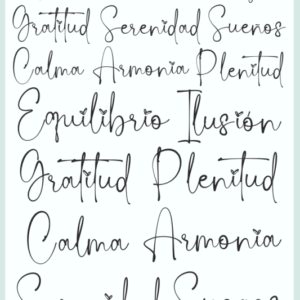 Gratitud Serenidad Sueños
Calma Armonia Plenitud
Equilibrio Ilusión
Gratitud Plenitud
Calma Armonia
Serenidad Sueños